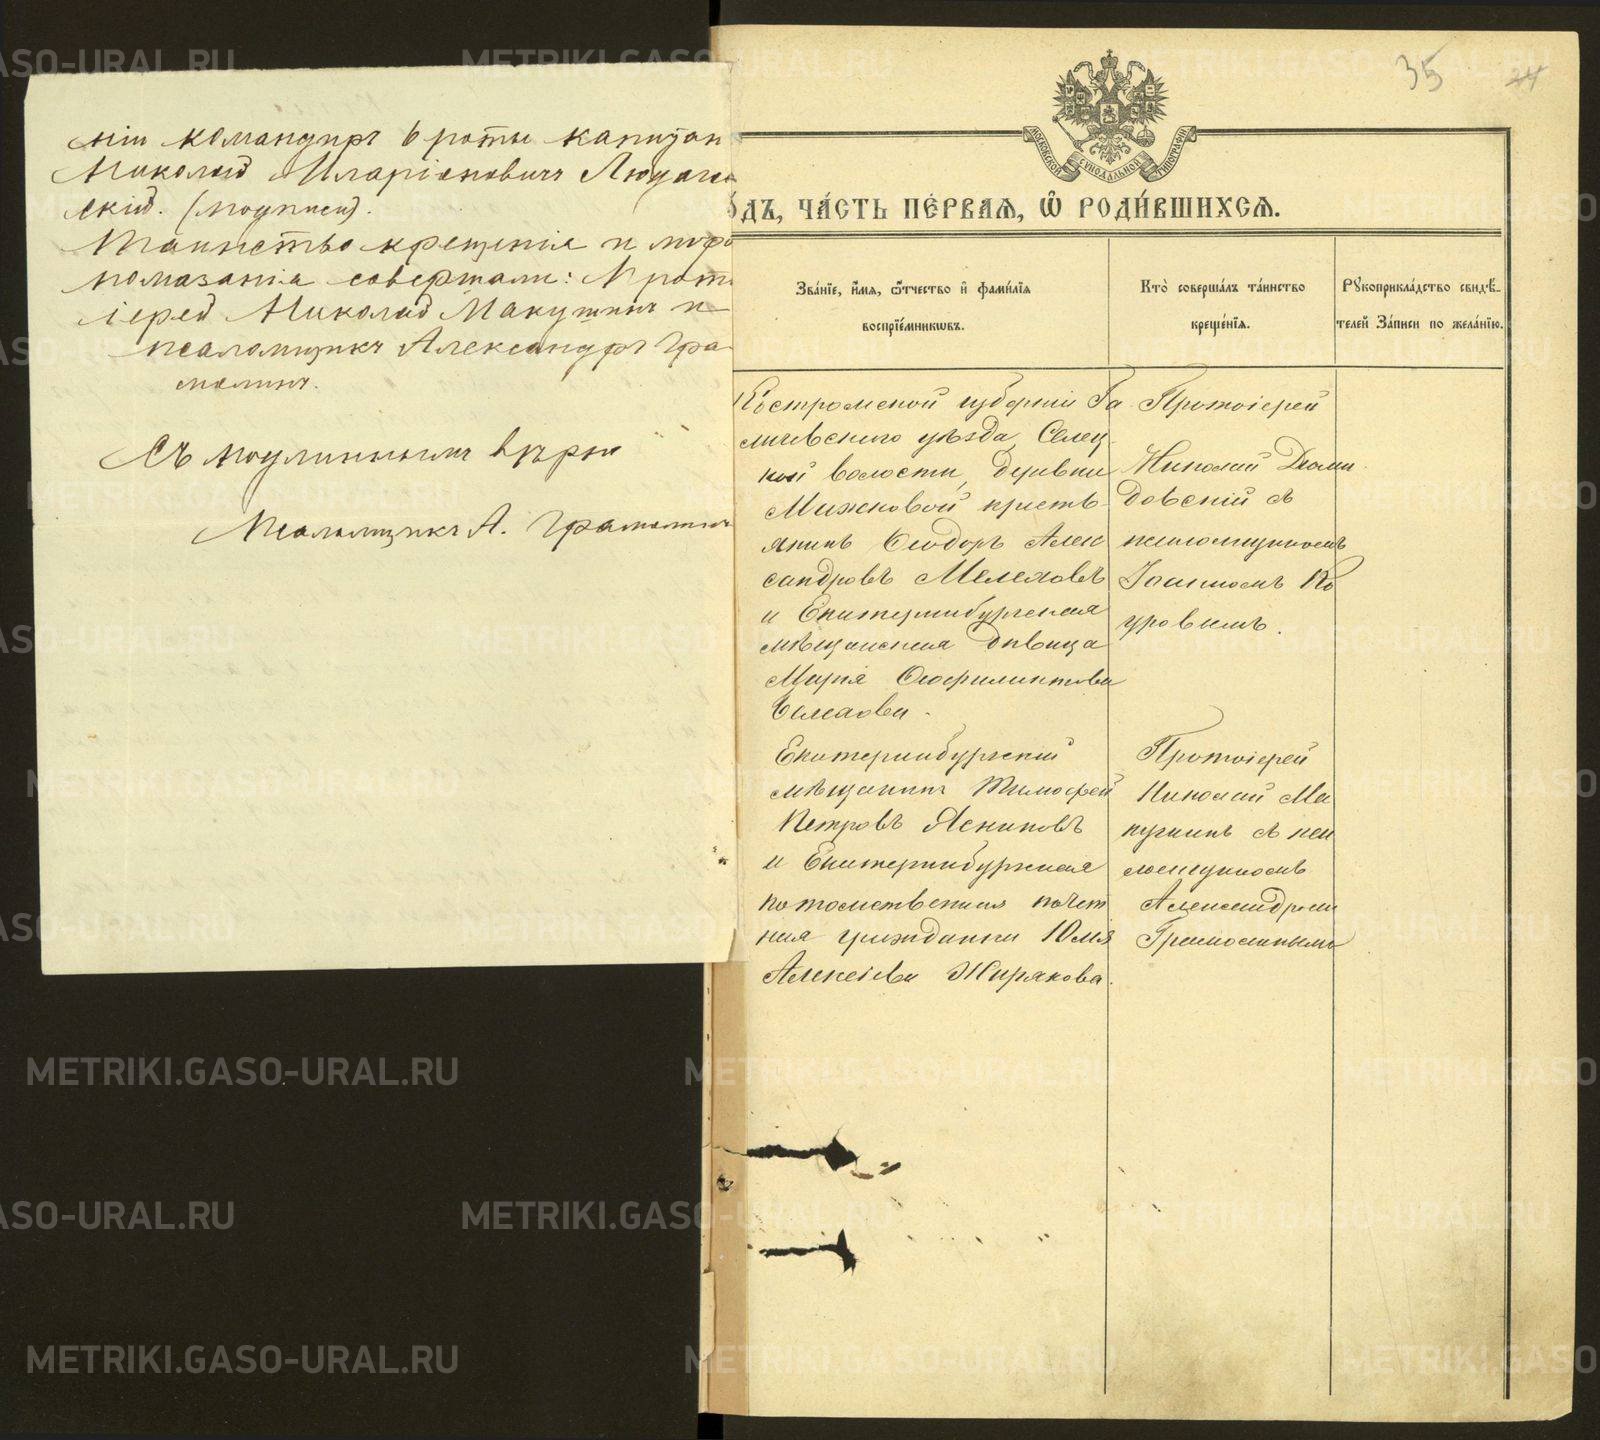 нiи командиръ 6 роты капитан
Николай Иларiоновичъ
скiй. (подписи).
Таинство крещенiя и мѵро
помазанiя совершали: Прот
iерей Николай Макушинъ и
псаломщикъ Александръ Гра
молинъ.
Съ подлиннымъ вѣрно
Псаломщикъ А. Грамолинъ
35
24
МОСКОВСКОЙ СѴНОДАЛЬНОЙ ТИПОГРАФIИ
ОДЪ, ЧА́СТЬ ПЕ́РВАѦ, Ѡ҆ РОДИ́ВШИХСѦ.
Зва́нїе, и҆́мѧ, ѻ҆́тчество и҆ фами́лїѧ
воспрїе́мникѡвъ.
Кто̀ соверша́лъ та́инство
креще́нїѧ.
Рꙋкоприкла́дство свидѣ́-
телей За́писи по жела́нїю.
Костромской губернiи Га
личевскаго уѣзда, Селец
кой волости, деревни
Мижковой кресть
янинъ Ѳеодоръ Алек
сандровъ Мелеховъ
и Екатеринбургская
мѣщанская дѣвица
Марiя Ѳеофилактова
Протоiерей
Николай Диоми
довскiй съ
псаломщикомъ
Iоанномъ Ко
уровымъ.
Екатеринбургскiй
мѣщанинъ Тимофей
Петровъ Ясниковъ
и Екатеринбургская
потомственная почет
ная гражданка Юлiя
Алексiева Жирякова.
Протоiерей
Николай Ма
кушинъ съ пса
ломщикомъ
Александромъ
Грамолинымъ
METRIKI.GASO-URAL.RU